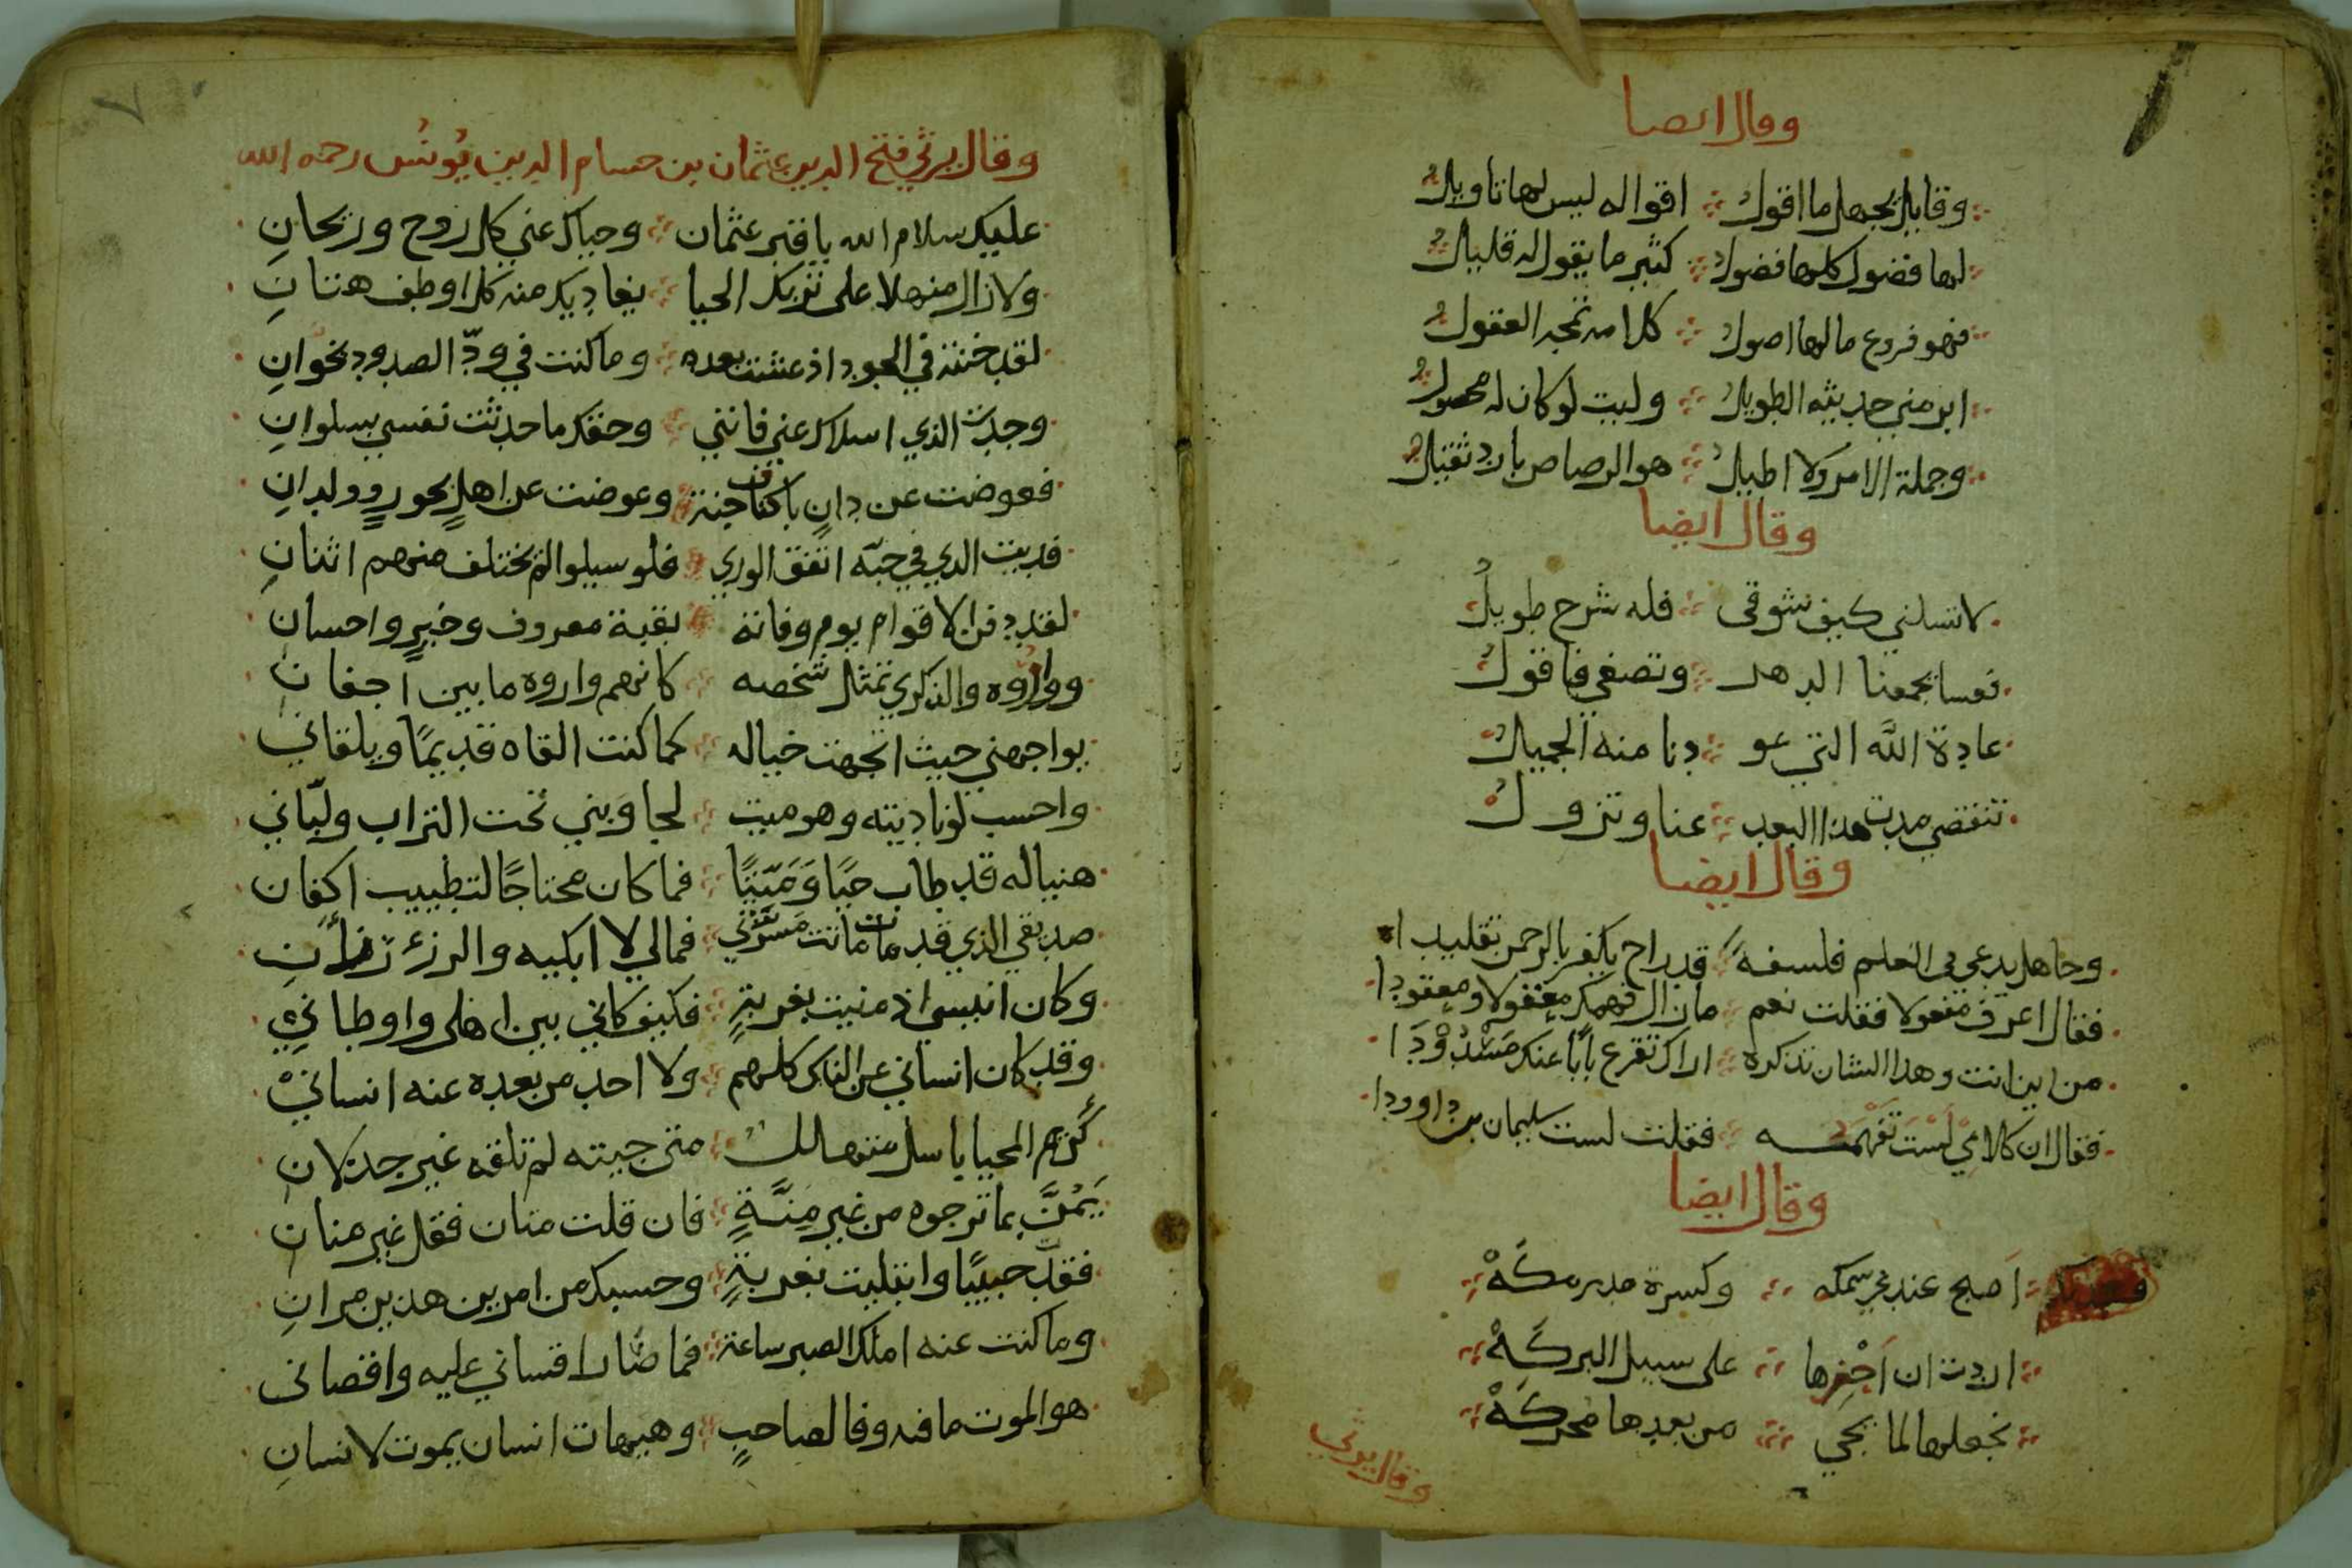 وقال ايضا
وقايل يجهل ما اقول اقواله ليس لها تاويل
لها فضول كلها فضول كثير ما يقوله قليل
فهو فروع مالها اصول كلامه تمجه العقول
ابرمني حديثه الطويل وليت لو كان له محصول
وجملة الامر ولا اطيل هو الرصاص بارد ثقيل
وقال ايضا
لا تسلني كيف شوقي فله شرح طويل
فعسا يجمعنا الدهر وتصغي فاقول
عادة الله التي عو دنا منه الجميل
تنقضي مدت هذا البعد عنا وتزول
وقال ايضا
وجاهل يدعي في العلم فلسفة قد راح يكفر بالرحمن تقليدا
فقال اعرف معقولا فقلت نعم مازال فهمك معقولا ومعقودا
من اين انت وهذا الشان تذكره اراك تقرع بابا عنك مسدودا
فقال ان كلامي لست تفهمه فقلت لست سليمان بن داوودا
وقال ايضا
اصبح عندي سمكه وكسرة مدرمكه
اردت ان احضرها على سبيل البركه
نجعلها لما يجي من بعدها محركه
وقال يرثي
٧
وقال يرثي فتح الدين عثمان بن حسام الدين يونس رحمه الله
عليك سلام الله يا قبر عثمان وحياك عني كل روح وريحان
ولازال منهلا على تربك الحيا يغاديك منه كل اوطف هتان
لقد خنته في الجود اذ عشت بعده وما كنت في ود الصدود بخوان
وجدت الذي اسلاك عني فانني وحقك ما حدثت نفسي بسلوان
فعوضت عن دار باكناف جنة وعوضت عن اهل بحور وولدان
فديت الذي في حبه اتفق الوري فلو سيلوا لم يختلف منهم اثنان
لقد دفن الاقوام يوم وفاته بقية معروف وخير واحسان
وواروه والذكري تمثل شخصه كانهم واروه ما بين اجفان
يواجهني حيث اتجهت خياله كما كنت القاه قديما ويلقاني
واحسب لو ناديته وهو ميت لجاوبني تحت التراب ولباني
هنيا له قد طاب حيا وميتا فما كان محتاجا لتطييب اكفان
صديقي الذي قد مات ماتت مسرتي فمالي لا ابكيه والرزء رزأن
وكان انيسي اذ منيت بغربة فكيف كاني بين اهلي واوطاني
وقد كان انساني عن الناس كلهم ولا احد من بعده عنه انساني
كريم المحيا باسل متهالك متى جيته لم تلقه غير جدلان
يمن بما ترجوه من غير منة فان قلت منان فقل غير منان
فقد حبيبا وابتليت بغربة وحسبك من امرين هذين مران
وما كنت عنه املك الصبر ساعة فما صار اقساني عليه واقصاني
هو الموت ما فيه وفا لصاحب وهيهات انسان يموت لانسان